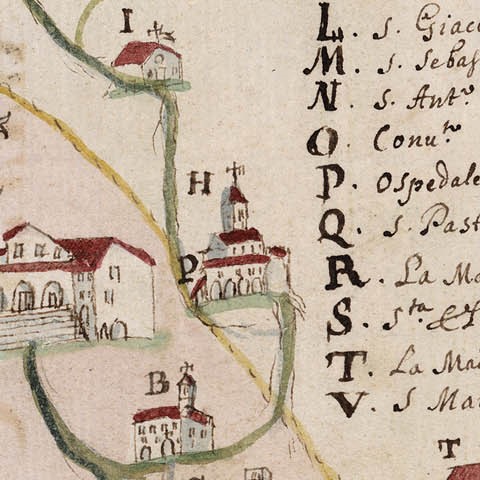 I
H
P
B
T
L. S. Giaco
M. S. Sebas
N. S. Ant.º
O. Conu.to
P. Ospedale
Q. S. Past
R. La Ma
S. S.ta
T. La Mad
V. S Mar